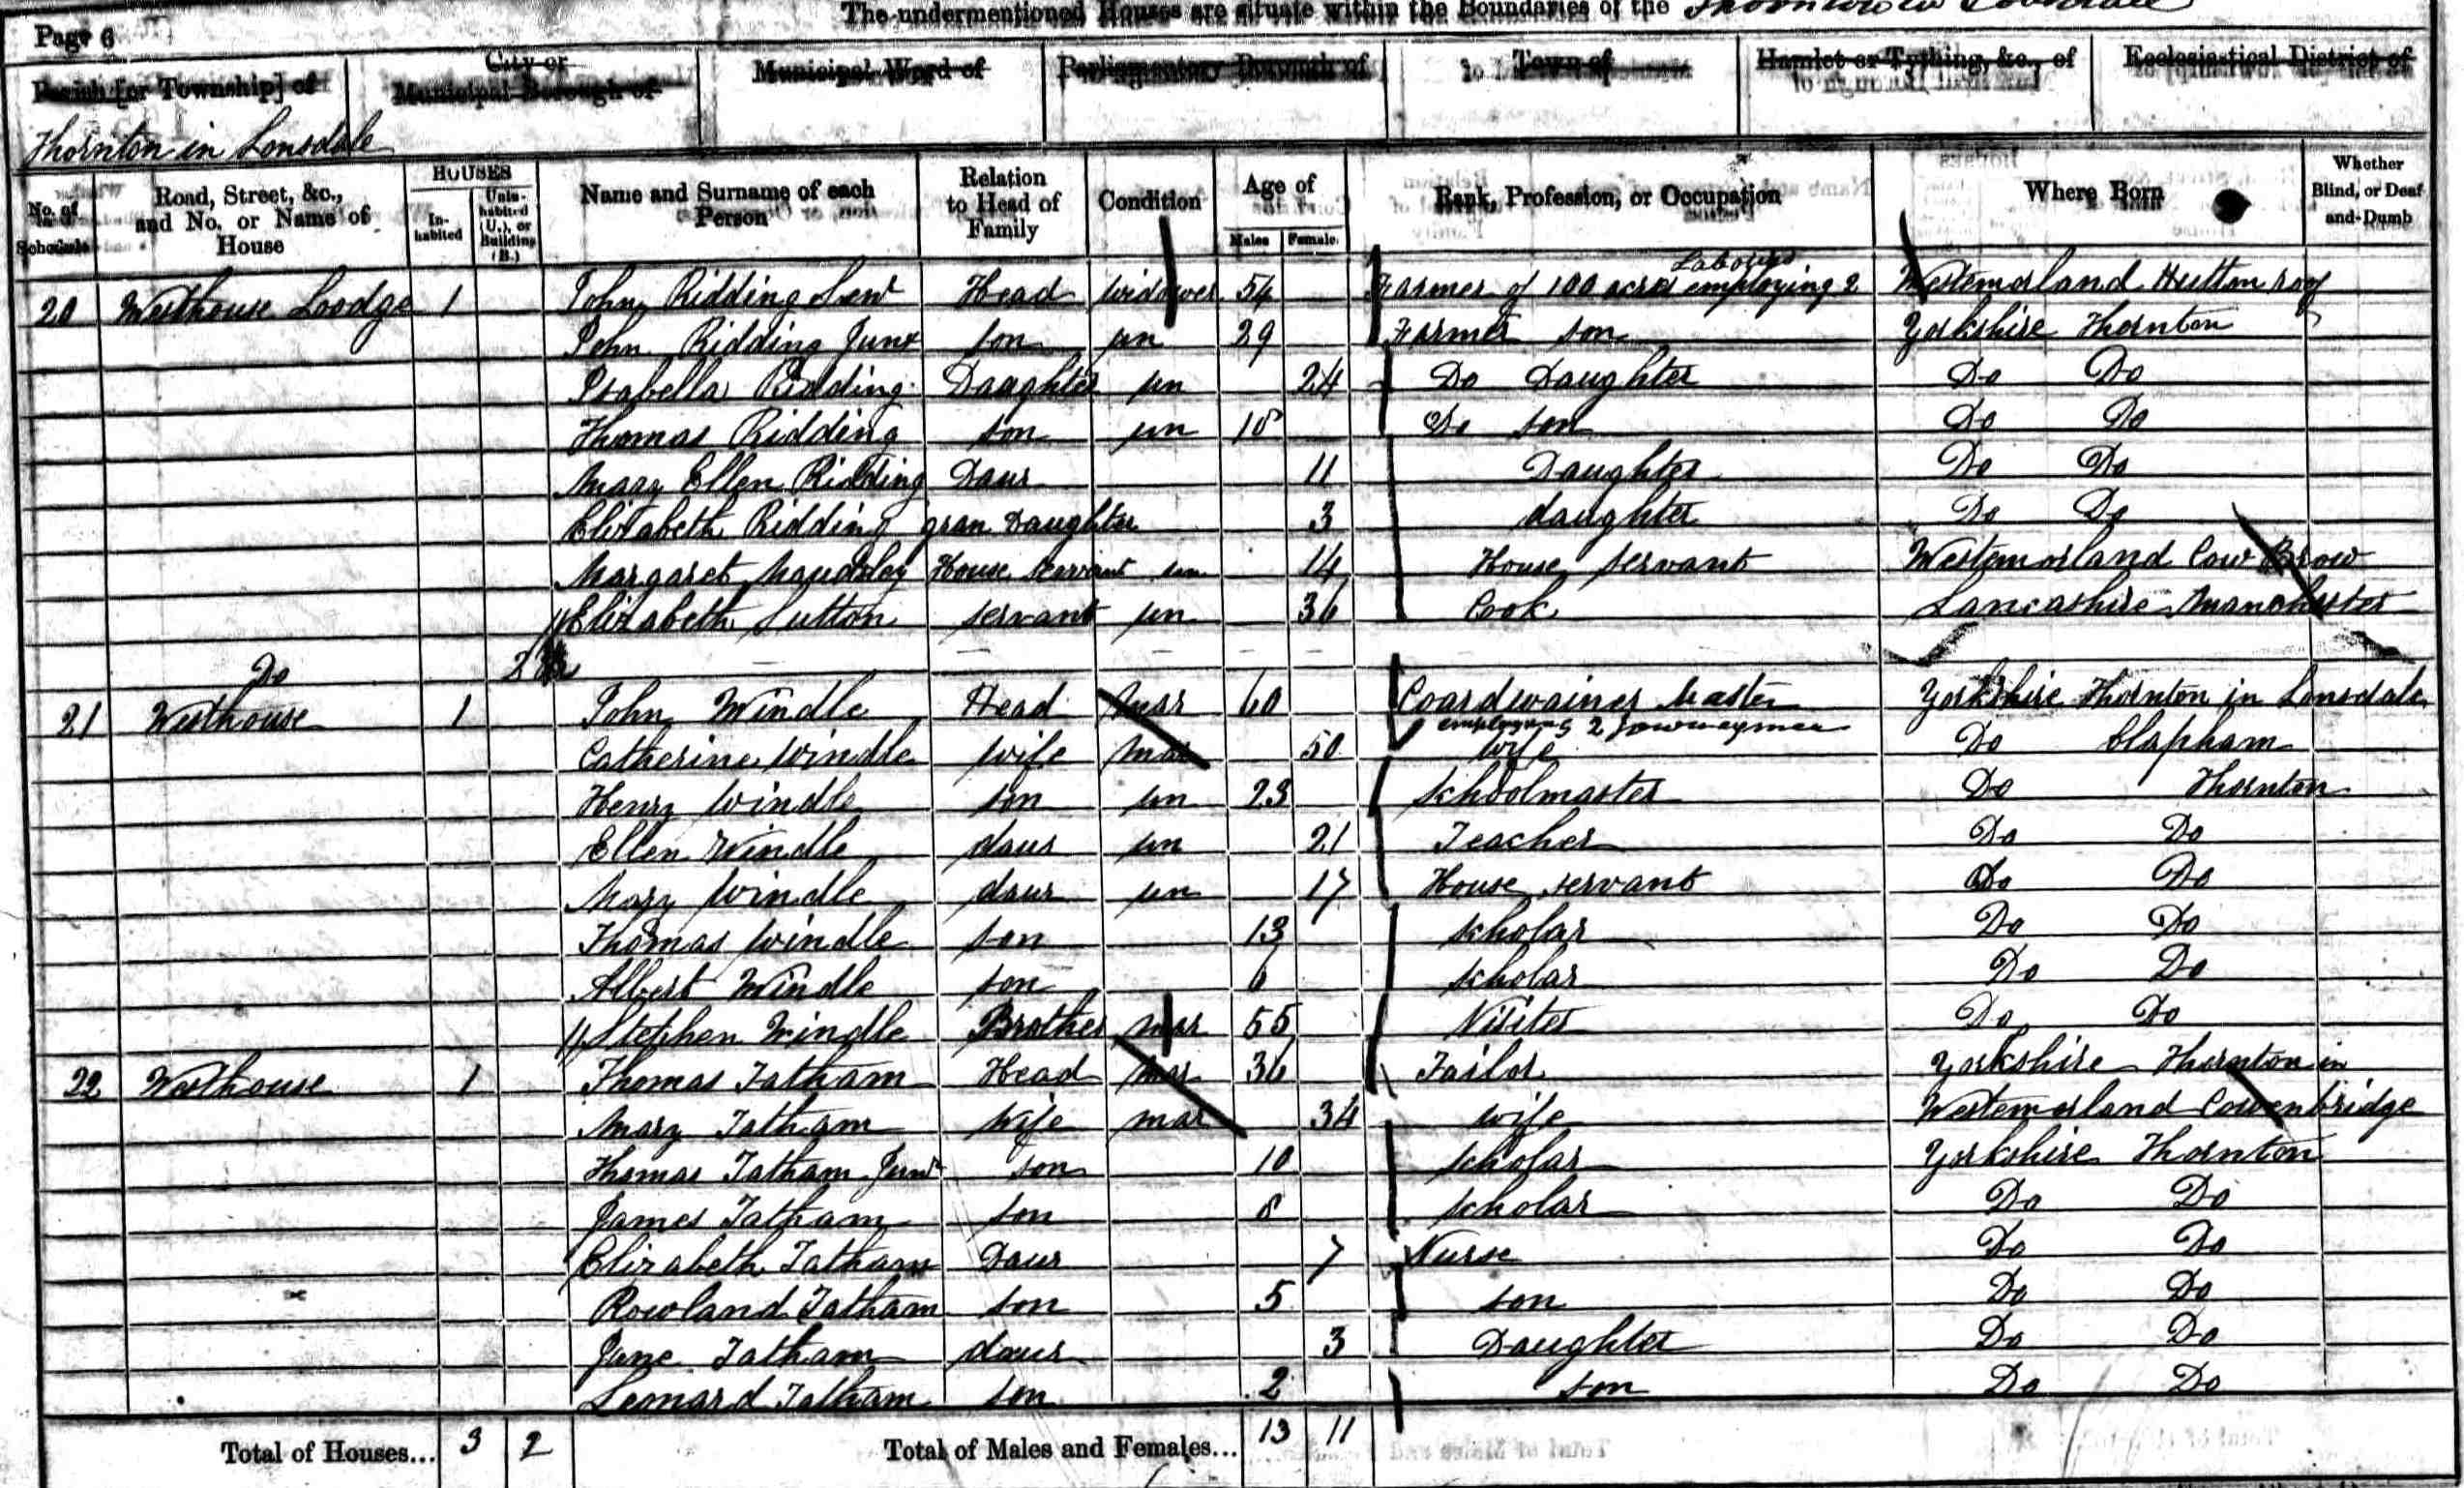 The undermentioned Houses are situate within the Boundaries of the Thornton in Lonsdale
Page 6
Parish [or Township] of
City or Municipal Borough of
Municipal Ward of
Parliamentary Borough of
Town of
Hamlet or Tything, &c., of
Ecclesiastical District of
Thornton in Lonsdale
No. of Schedule
Road, Street, &c., and No. or Name of House
HOUSES
In-habited
Unin-habited (U.), or Building (B.)
Name and Surname of each Person
Relation to Head of Family
Condition
Age of
Males
Females
Rank, Profession, or Occupation
Where Born
Whether Blind, or Deaf and Dumb
20 Westhouse Loodge 1 John Ridding Senr Head widower 54 Farmer of 100 acres employing 2 Labourers Westemorland Hutton roof
John Ridding Junr son un 29 Farmer son Yorkshire Thornton
Isabella Ridding Daughter un 24 Do Daughter Do Do
Thomas Ridding son un 18 Do son Do Do
Mary Ellen Ridding Daur 11 Daughter Do Do
Elizabeth Ridding gran Daughter 3 daughter Do Do
Margaret Maudsley House servant un 14 House servant Westemorland Cow Brow
Elizabeth Sutton servant un 36 Cook Lancashire Manchester
Do 2
21 Westhouse 1 John Windle Head mar 60 Coardwainer Master employing 2 jowrneymen Yorkshire Thornton in Lonsdale
Catherine Windle wife mar 50 wife Do Clapham
Henry Windle son un 23 schoolmaster Do Thornton
Ellen Windle daur un 21 Teacher Do Do
Mary Windle daur un 17 House servant Do Do
Thomas Windle son 13 scholar Do Do
Albert Windle son 6 scholar Do Do
Stephen Windle Brother mar 55 Visiter Do Do
22 Westhouse 1 Thomas Tatham Head mar 36 Tailor Yorkshire Thornton in
Mary Tatham wife mar 34 wife Westemorland Cowenbridge
Thomas Tatham Junr son 10 scholar Yorkshire Thornton
James Tatham son 8 scholar Do Do
Elizabeth Tatham Daur 7 Nurse Do Do
Rowland Tatham son 5 son Do Do
Jane Tatham daur 3 Daughter Do Do
Leonard Tatham son 2 son Do Do
Total of Houses... 3 2 Total of Males and Females... 13 11